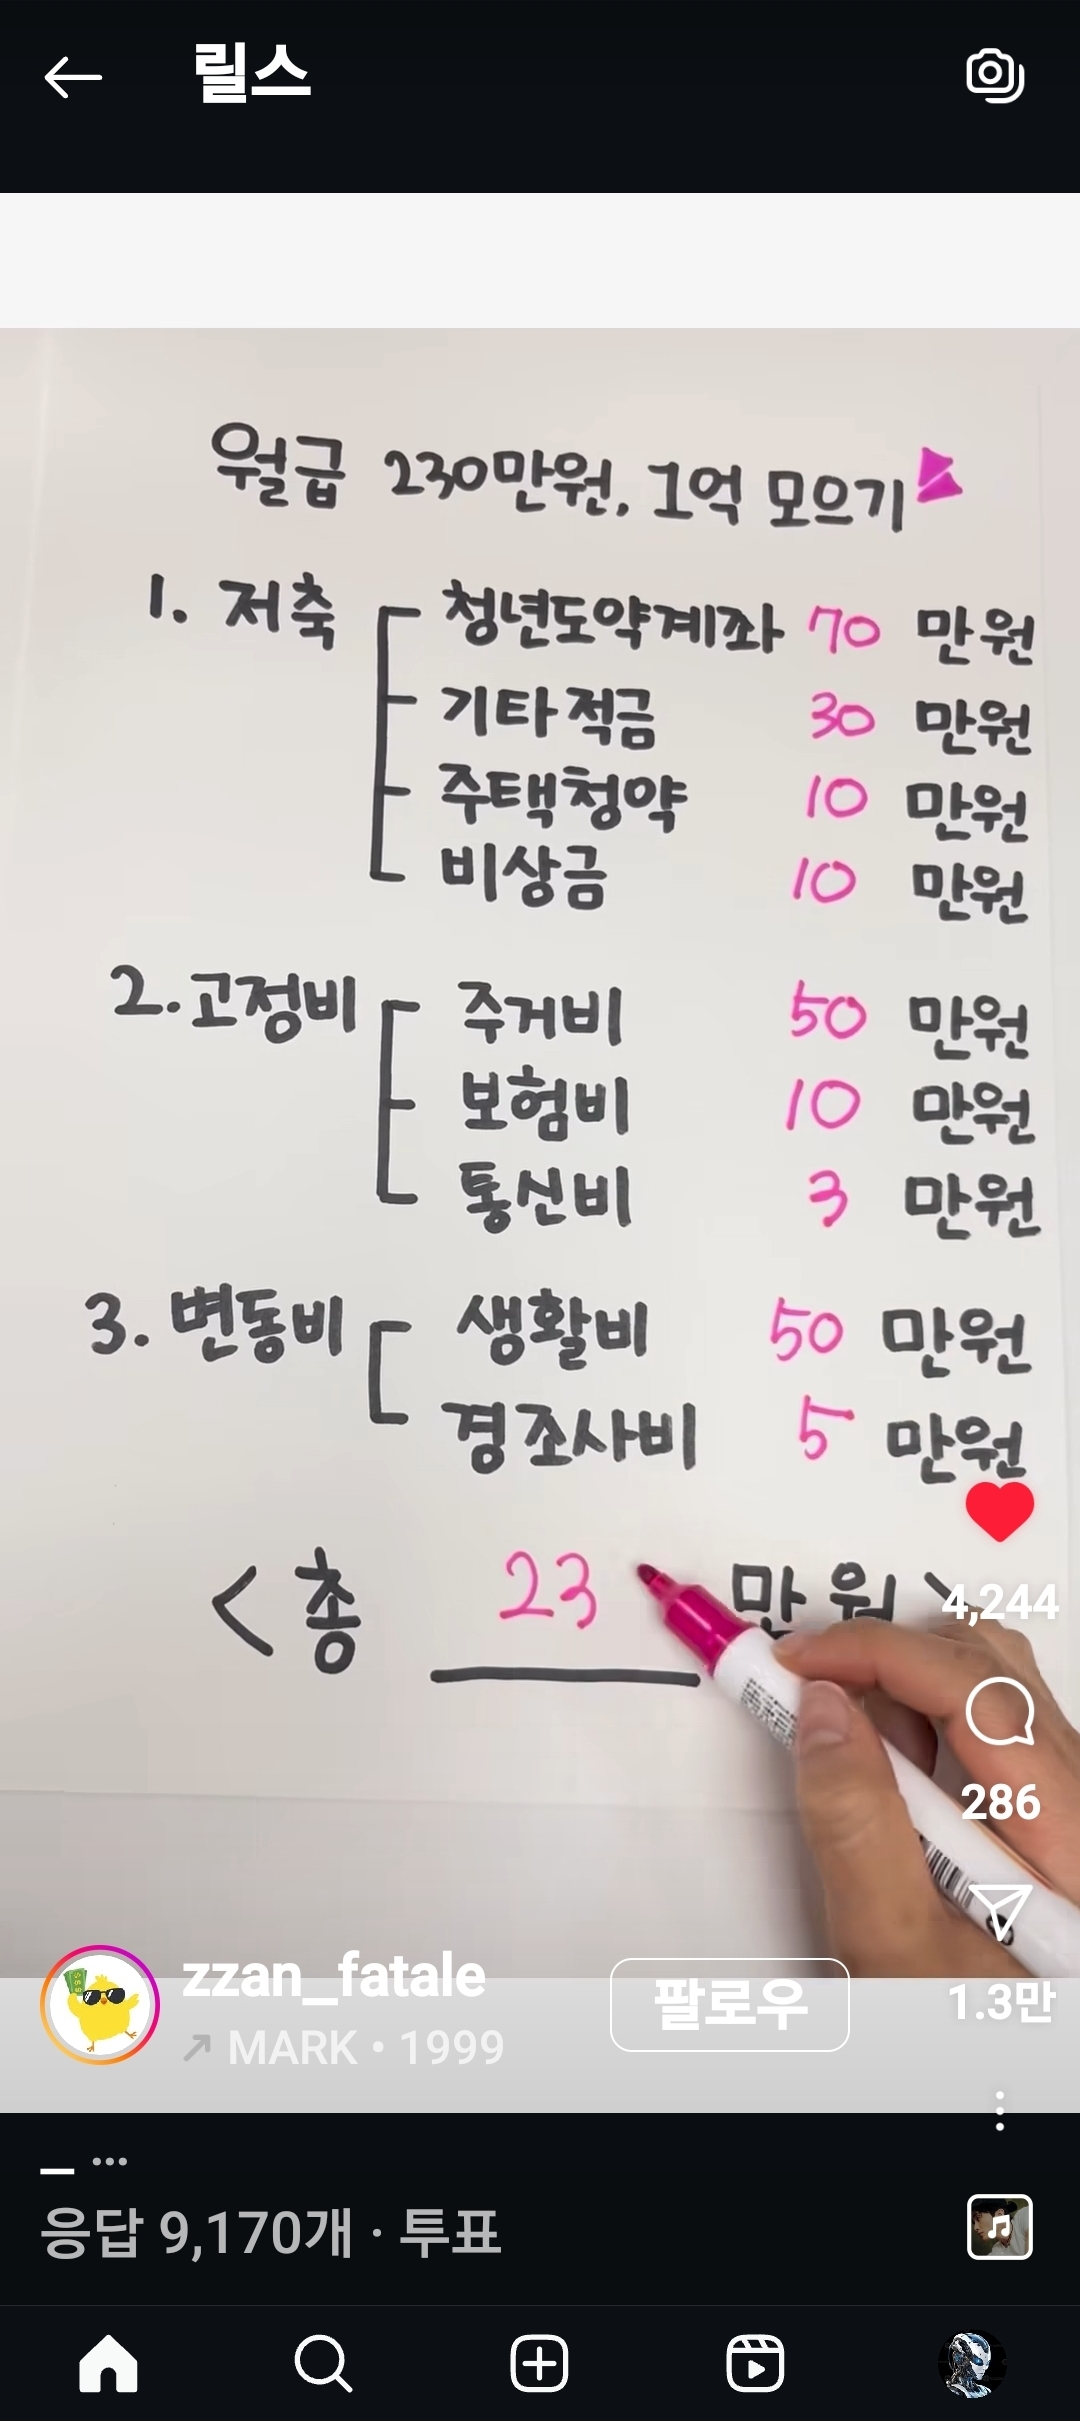 릴스
월급 230만원, 1억 모으기
1. 저축 청년도약계좌 70 만원
기타적금 30 만원
주택청약 10 만원
비상금 10 만원
2. 고정비 주거비 50 만원
보험비 10 만원
통신비 3 만원
3. 변동비 생활비 50 만원
경조사비 5 만원
<총 23 만원>
4,244
286
zzan_fatale
팔로우
1.3만
MARK • 1999
_ ...
응답 9,170개 · 투표